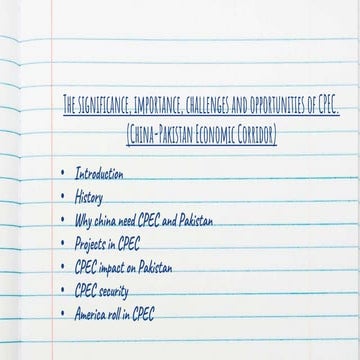 The significance, importance, challenges and opportunities of CPEC.
(China-Pakistan Economic Corridor)
• Introduction
• History
• Why china need CPEC and Pakistan
• Projects in CPEC
• CPEC impact on Pakistan
• CPEC security
• America roll in CPEC